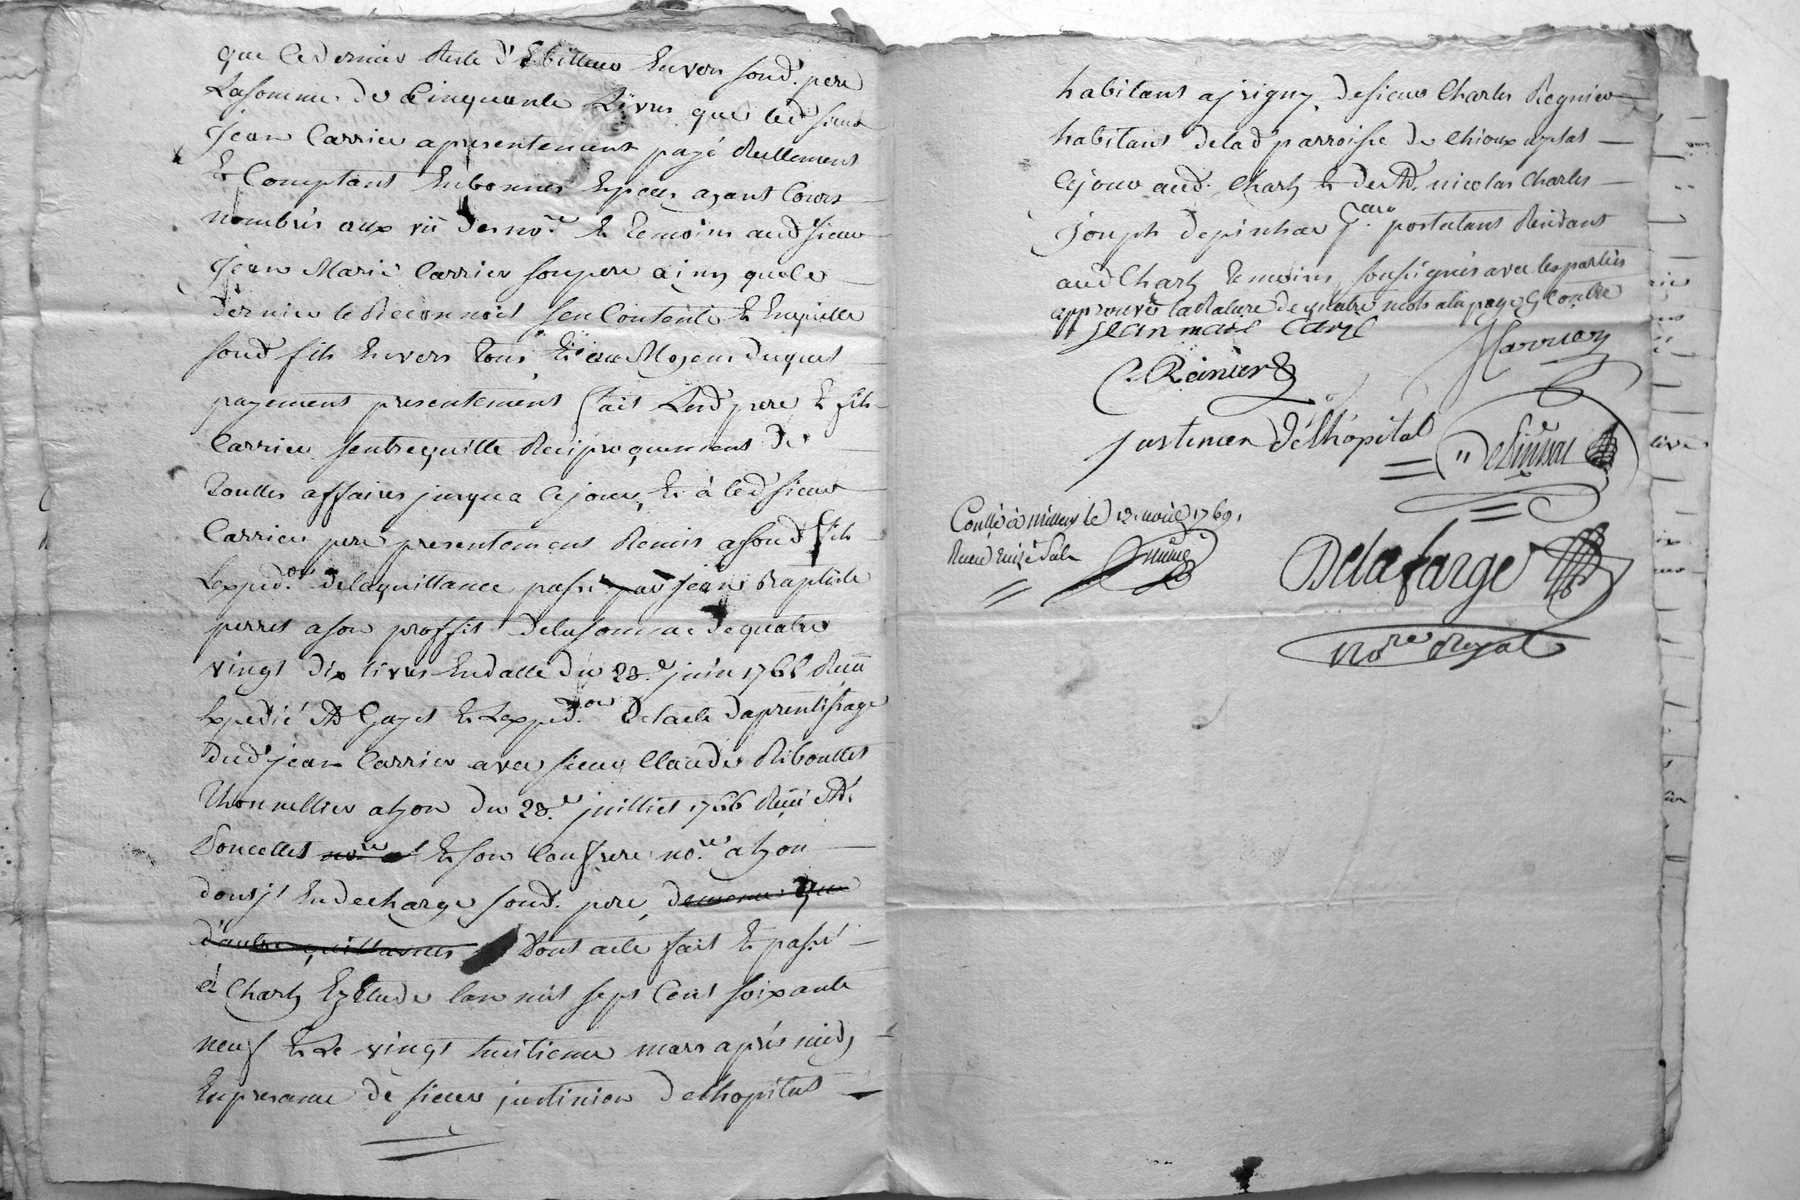 que ce dernier Reste d'Ebiteur Envers sond. pere
La somme de Cinquante Livres que led. sieur
Jean Carrier apresentement payé Reellement
Et Comptant En bonnes Especes ayant Cours
nombrés aux vu Des no.re Et temoins aud sieur
Jean Marie Carrier son pere ainsy que le
dernier le Reconnoit sen Contente Et En quitte
sond. fils Envers tous Et au Moyen duquel
payement presentement fait Lesd pere Et fils
Carrier sentrequitte Reciproquement De
touttes affaires jusqu a Ce jour, Et à led sieur
Carrier pere presentement Remis a sond fils
Lexped.on de la quittance passé par jean Baptiste
perret a son proffit De la somme de quatre
vingt dix livres En datte du 28.e juin 1766 Receu
Expedié Gayet Et Lexped.on De lacte Daprentissage
dud jean Carrier avec sieur Claude Riboullet
Thonnellier a Lyon du 28.e juilliet 1766 Receu
Doucettes no.re a Et son Confrere no.re a Lyon
dont jl En decharge sond. pere, de meme que
d'autre quittances Dont acte fait Et passé
à Charly En Etude lan mil sept Cent soixante
neuf Et Le vingt huitieme mars après midy
En presence de sieur justinien Delhopital
habitant a jrigny, de sieur Charles Regnier
habitant de lad parroisse de
Ce jour aud. Charly Et de Nicolas Charles
Joseph depinhac postulant Residant
aud Charly temoins soussignés avec les parties
approuvé la Rature de quatre mots a la page cy Contre
Jean mari Carié
J Carrier
C. Reinier
justinien Délhôpital
Depinhac
Conllé à millery le 12. avril 1769.
Receu treize sols
Delafarge
No.re Royal